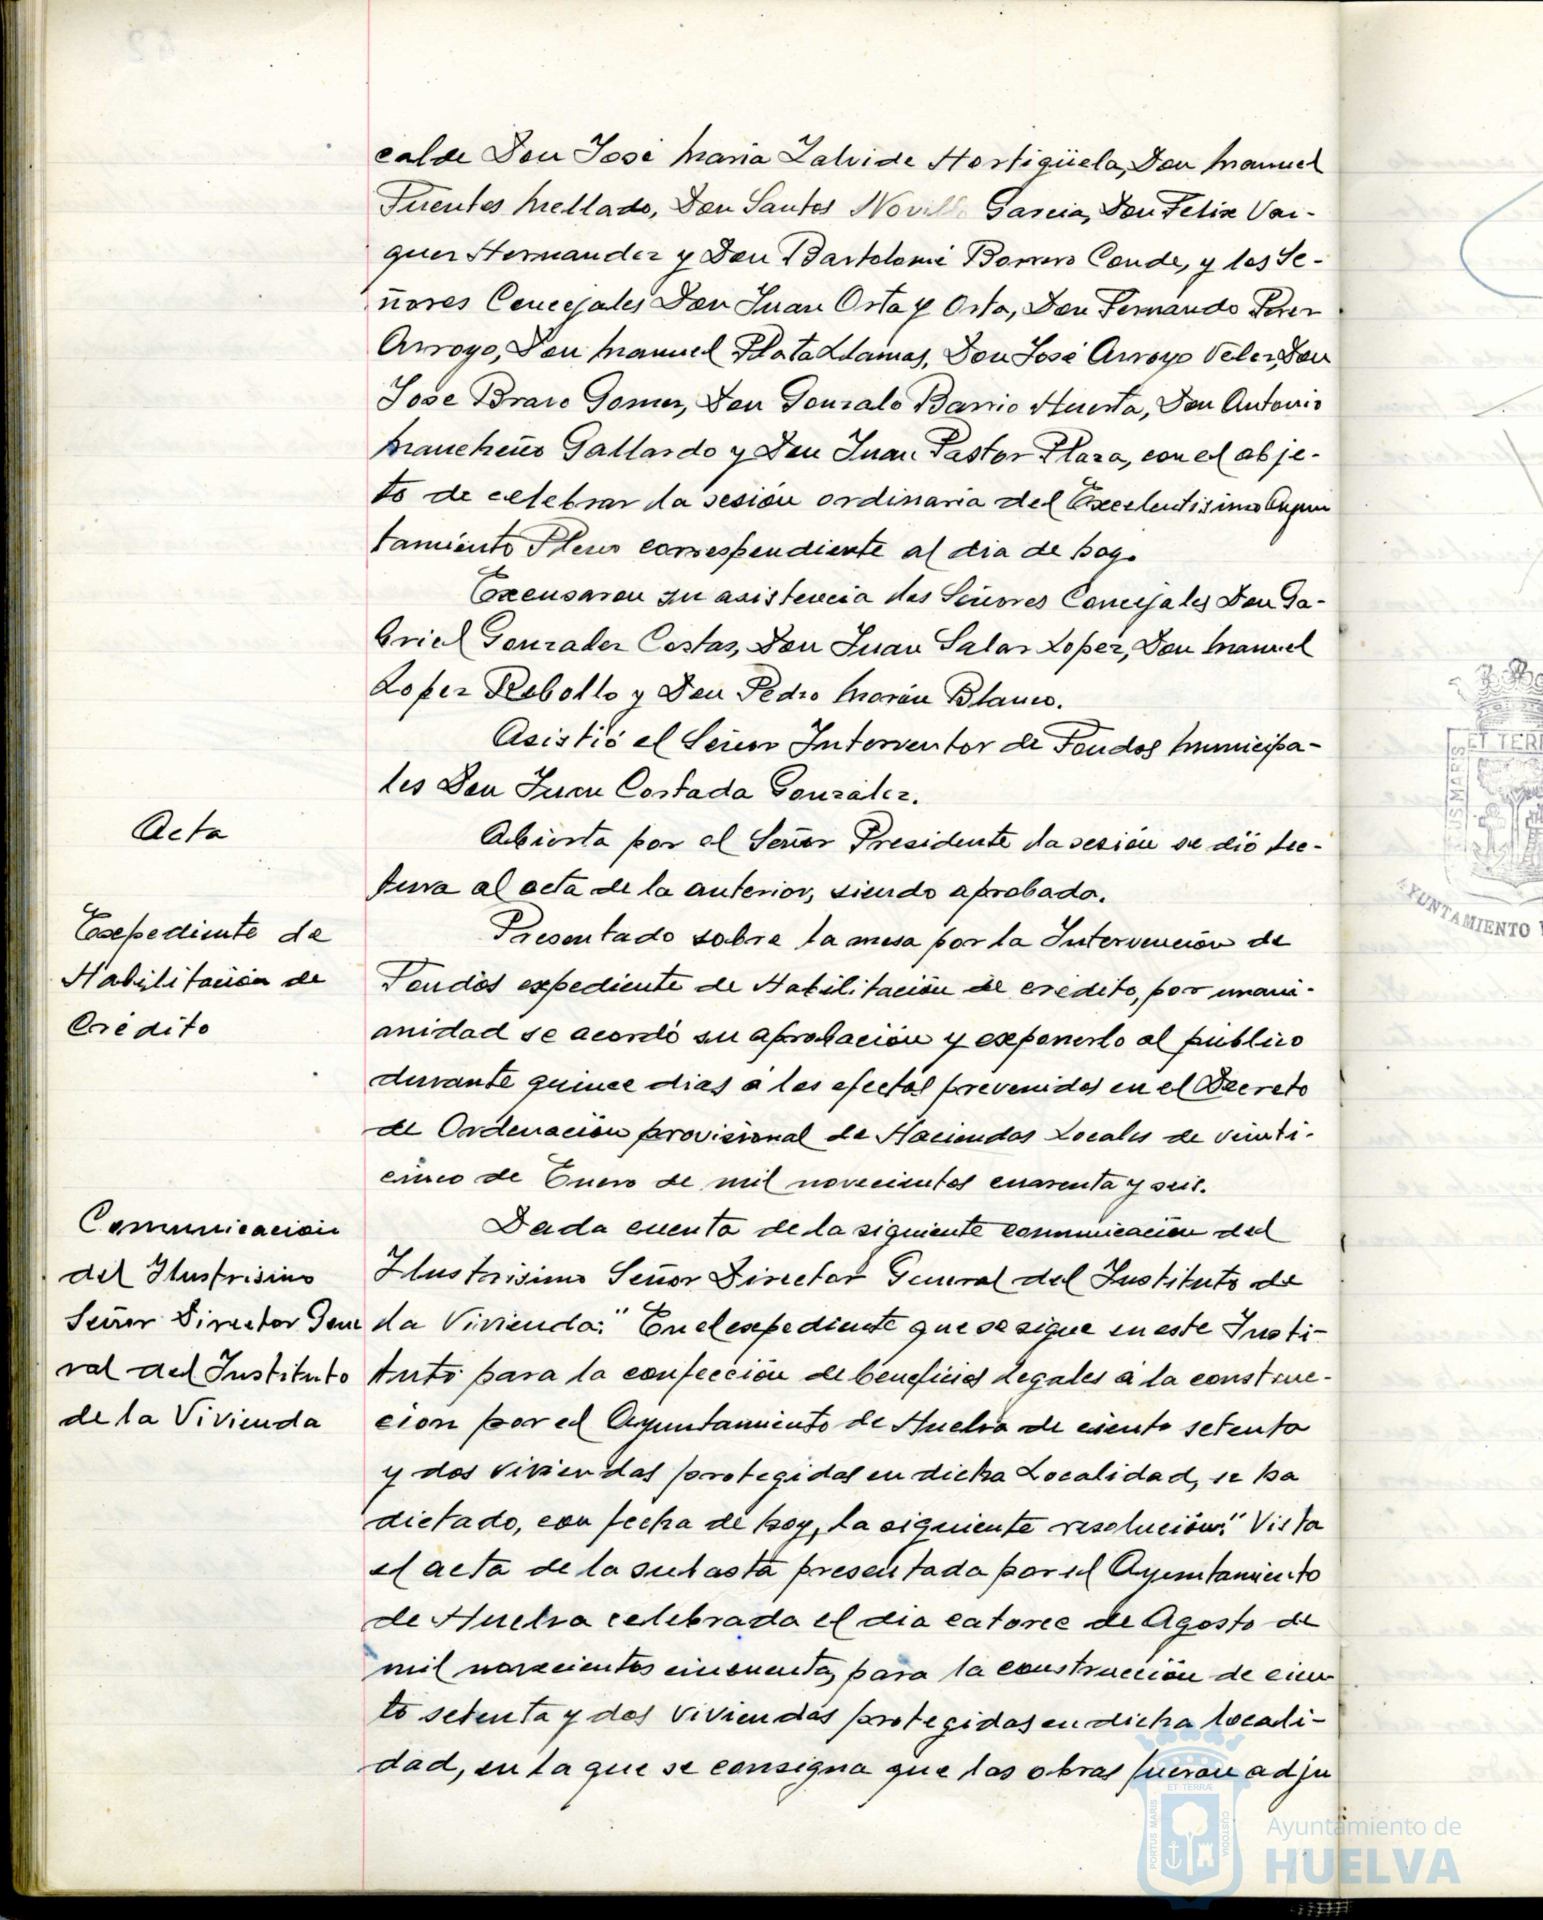 calde Don José Maria Zalvide Hortigüela, Don Manuel
Fuentes Mellado, Don Santos Novillo Garcia, Don Felix Vaz-
quez Hernandez y Don Bartolomé Borrero Conde, y los Se-
ñores Concejales Don Juan Orta y Orta, Don Fernando Perez
Arroyo, Don Manuel Plata Llamas, Don José Arroyo Velez, Don
Jose Bravo Gomez, Don Gonzalo Barrio Huerta, Don Antonio
Mancheño Gallardo y Don Juan Pastor Plaza, con el obje-
to de celebrar la sesión ordinaria del Excelentisimo Ayun
tamiento Pleno correspondiente al dia de hoy.
Excusaron su asistencia los Señores Concejales Don Ga-
briel Gonzalez Costas, Don Juan Salas Lopez, Don Manuel
Lopez Rebollo y Don Pedro Morón Blanco.
Asistió el Señor Interventor de Fondos Municipa-
les Don Juan Cortada González.
Acta
Abierta por el Señor Presidente la sesión se dió lec-
tura al acta de la anterior, siendo aprobada.
Expediente de
Habilitación de
Crédito
Presentado sobre la mesa por la Intervención de
Fondos expediente de Habilitación de crédito, por unani-
anidad se acordó su aprobación y exponerlo al público
durante quince dias á los efectos prevenidos en el Decreto
de Ordenación provisional de Haciendas Locales de veinti-
cinco de Enero de mil novecientos cuarenta y seis.
Comunicación
del Ilustrisimo
Señor Director Gene
ral del Instituto
de la Vivienda
Dada cuenta de la siguiente comunicación del
Ilustrisimo Señor Director General del Instituto de
la Vivienda: "En el expediente que se sigue en este Insti-
tuto para la confección de beneficios legales á la construc-
cion por el Ayuntamiento de Huelva de ciento setenta
y dos viviendas protegidas en dicha Localidad, se ha
dictado, con fecha de hoy, la siguiente resolución: "Vista
el acta de la subasta presentada por el Ayuntamiento
de Huelva celebrada el dia catorce de Agosto de
mil novecientos cincuenta, para la construcción de cien-
to setenta y dos viviendas protegidas en dicha locali-
dad, en la que se consigna que las obras fueron adju
ET TERR
AYUNTAMIENTO
PORTUS MARIS
ET TERRÆ
CUSTODIA
Ayuntamiento de
HUELVA